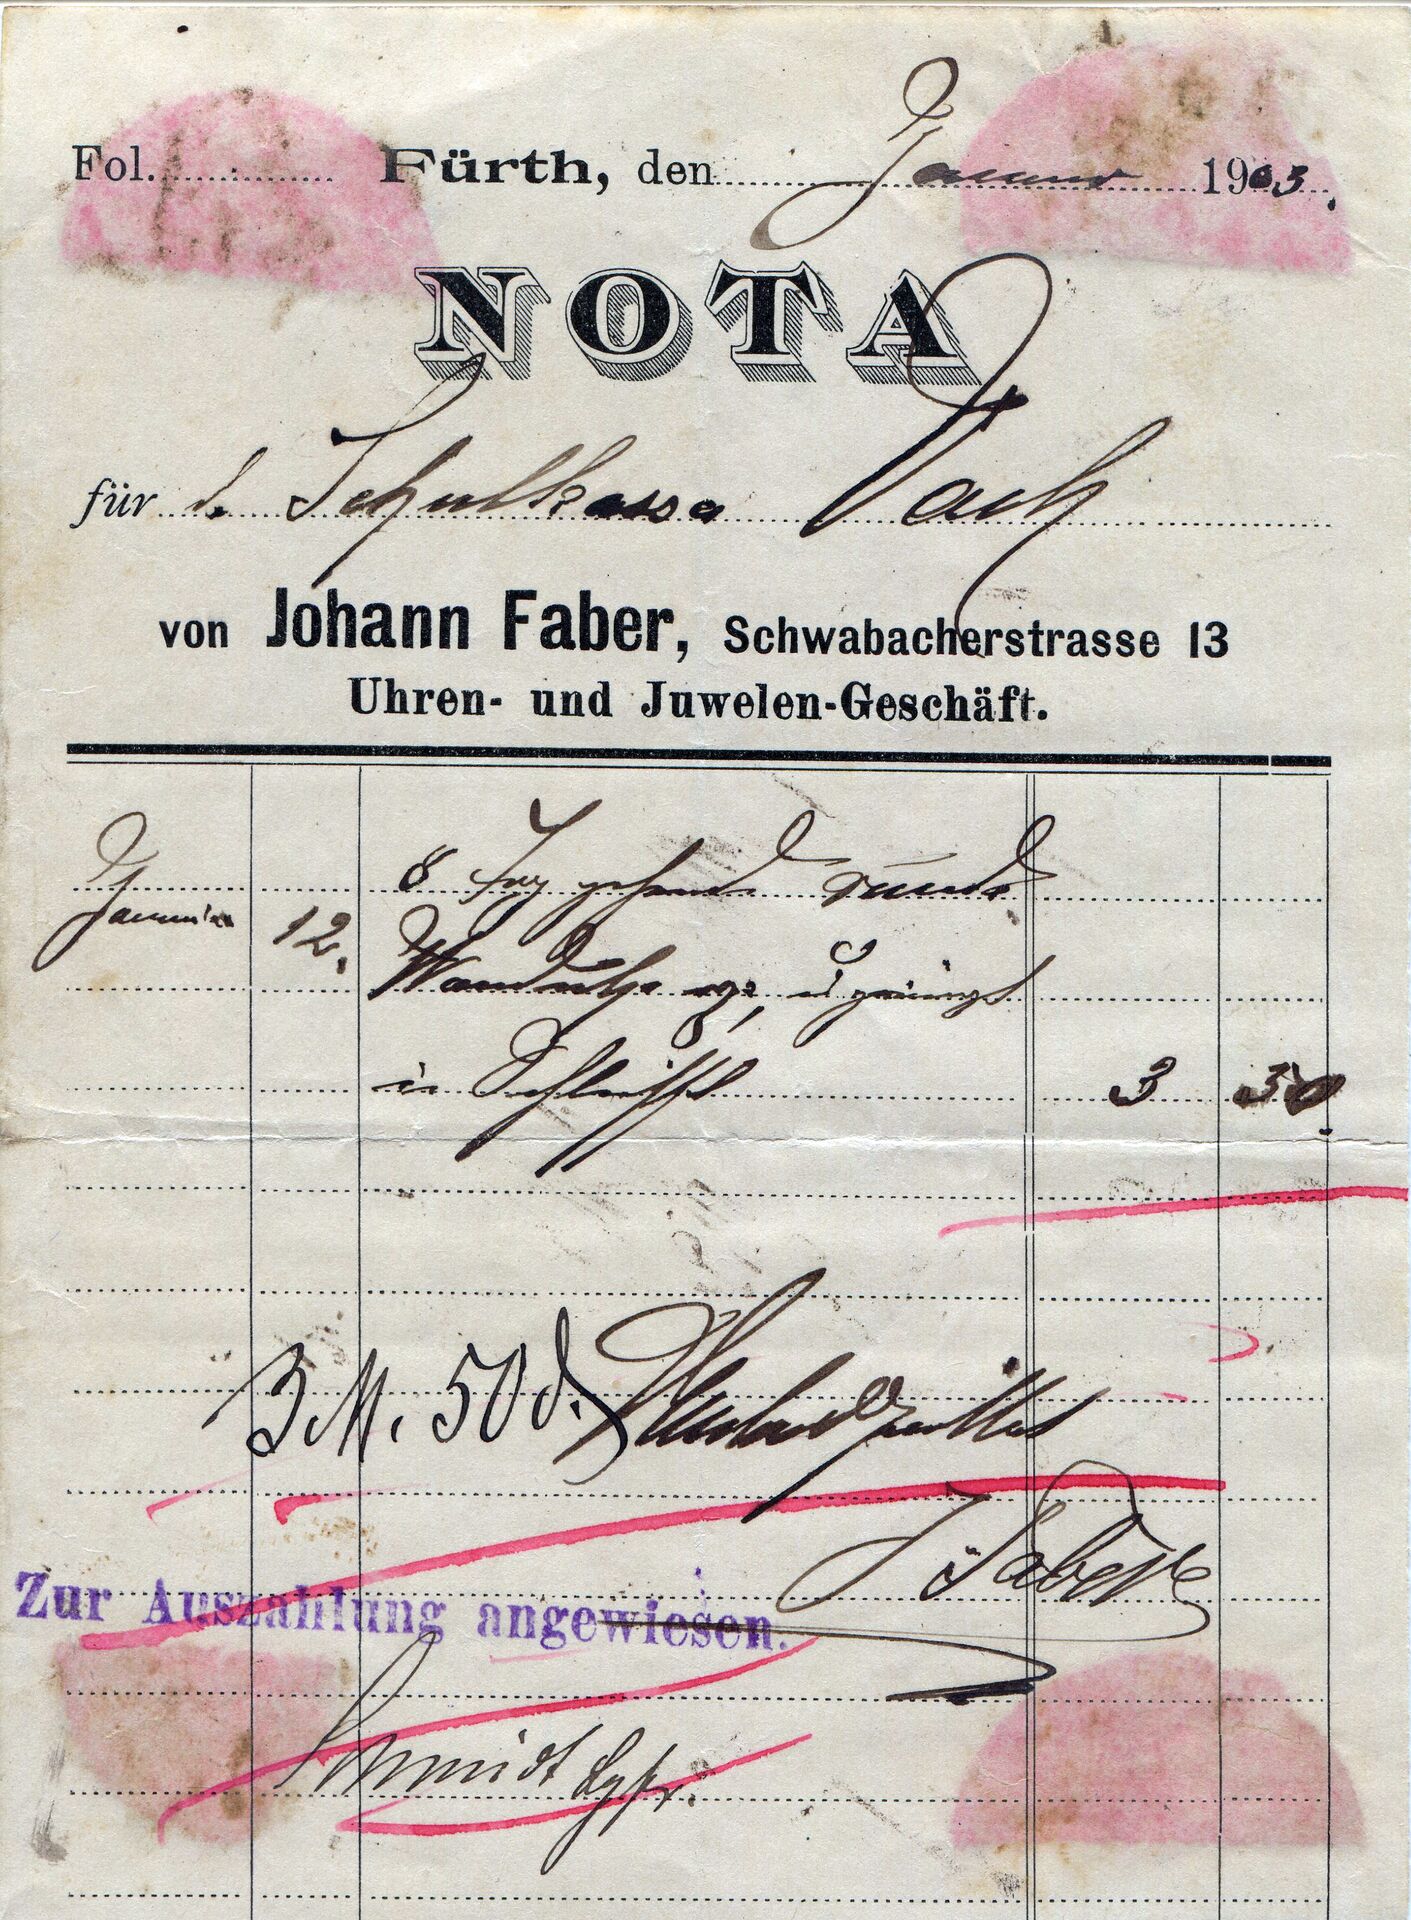 Fol. Fürth, den Januar 1903.
NOTA
für d. Schulkassa Vach
von Johann Faber, Schwabacherstrasse 13
Uhren- und Juwelen-Geschäft.
Januar 12. 8 Tag gehende runde
Wanduhr
3 50
3 M. 50 d.
J Faber
Zur Auszahlung angewiesen.
Schmidt